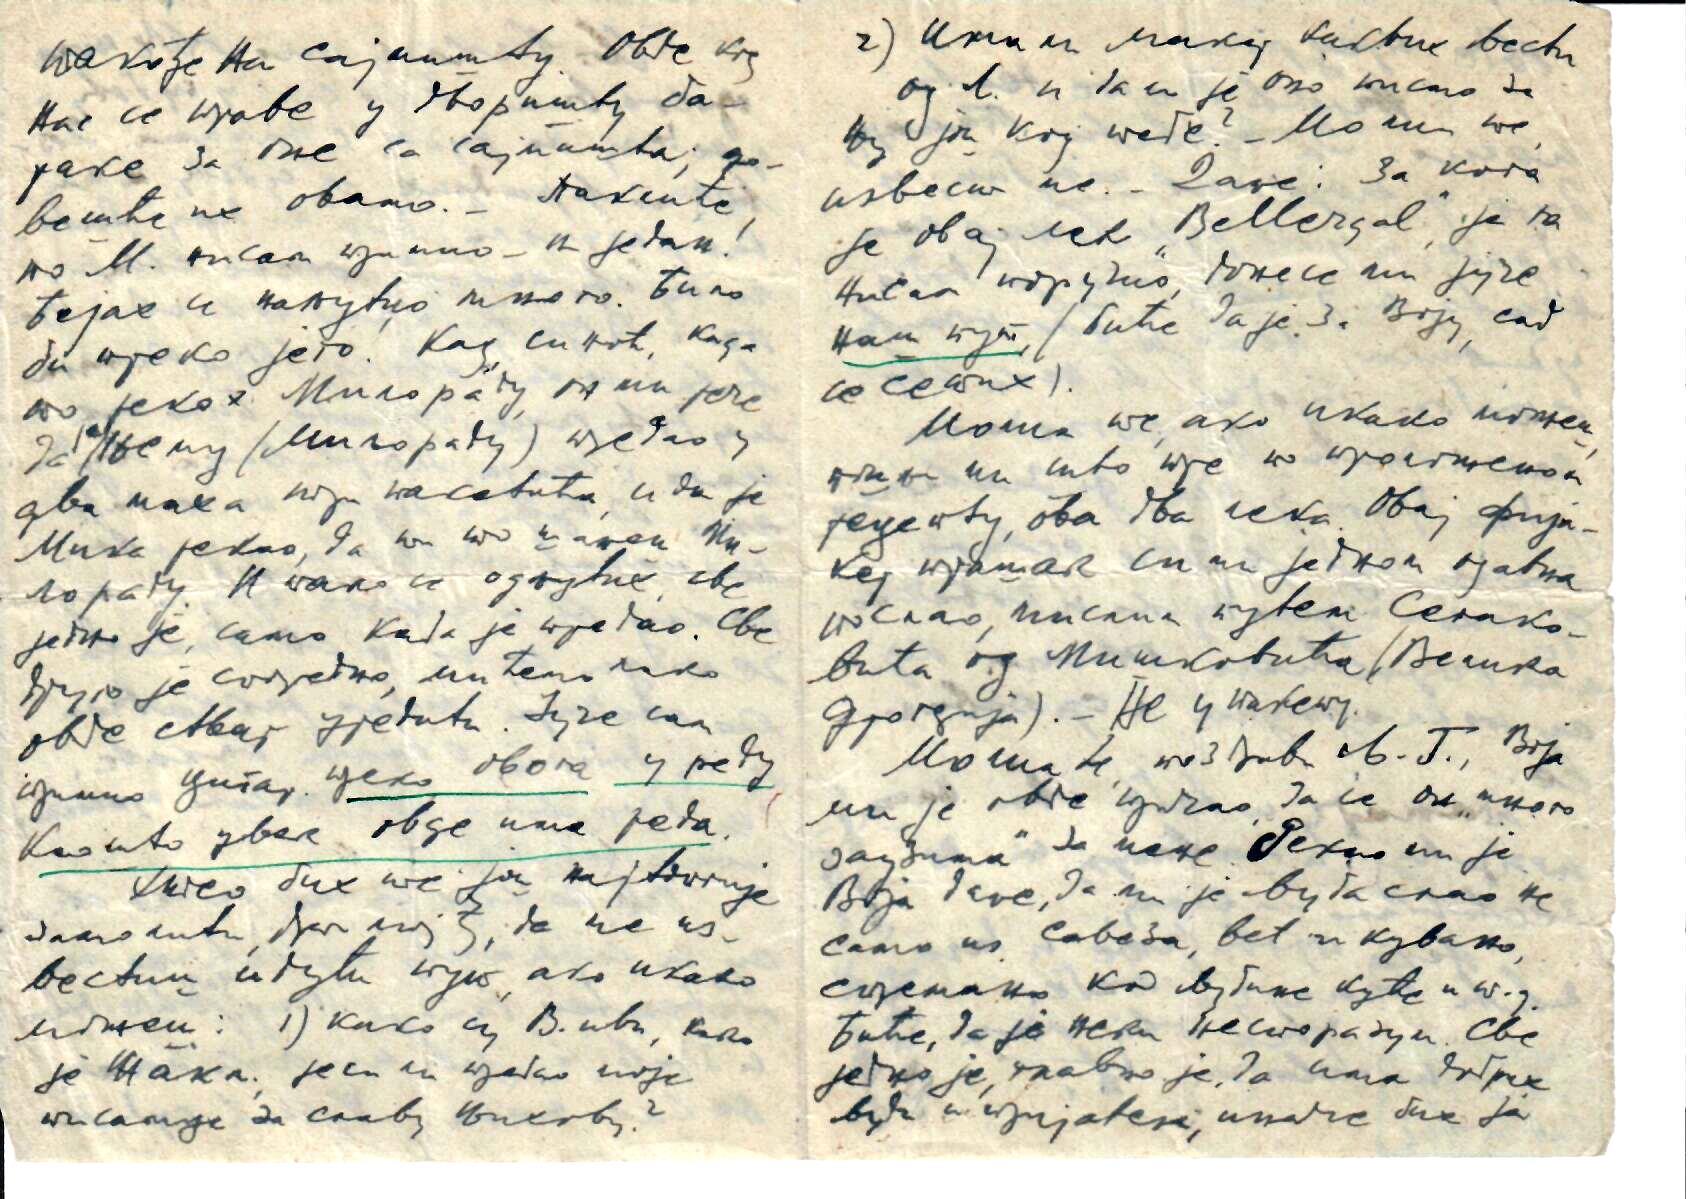 такође на сајмишту. Овде код
нас се праве у дворишту ба-
раке за оне са сајмишта; до-
вешће их овамо. – Пакете,
по М. нисам примио – ни један!
Бејах се наљутио много. Било
би преко јего. Кад, синоћ, када
то рекох Милораду, он ми рече
да је њему (Милораду) предао у
два маха пакетића, и да је
Мика рекао, да ти то шаљеш Ми-
лораду. И тако се одљутих, све
једно је, само када је предао. Све
друго је споредно, ми ћемо лако
овде ствар уредити. Јуче сам
примио цигар. преко овога у реду
Као што увек овде има реда.
Хтео бих те још најтоплије
замолити, драги мој, да ме из-
вестиш идући пут, ако икако
можеш: 1) како су В. и ви, како
је Нака; јеси ли предао моје
писамце за славу њихову?
2) Има ли макар каквих вести
од Л. и да ли је оно писмо за
њу још код тебе? – Молим те,
извести ме. – Даље: за кога
је овај лек „Bellergal“, ја га
нисам поручио, донесе ми јуче
наш пут, (биће да је за Воју, сад
се сетих).
Молим те, ако икако можеш,
пошљи ми што пре по приложеном
рецепту, оба два лека. Овај фија-
кер прашак си ми једном одавна
послао, мислим путем Сенако-
вића од Мишковића (Велика
дрогерија). – Не у пакету.
Молим те, поздрави М. Г., Воја
ми је овде причао, да се он „много
заузима“ за мене. Рекао ми је
Воја даље, да ми је вуда слао не
само из Савеза, већ и кувано,
спремано код његове куће и т. д.
Биће, да је неки неспоразум. Све
једно је, главно је, да има добрих
људи и пријатеља, иначе бих ја